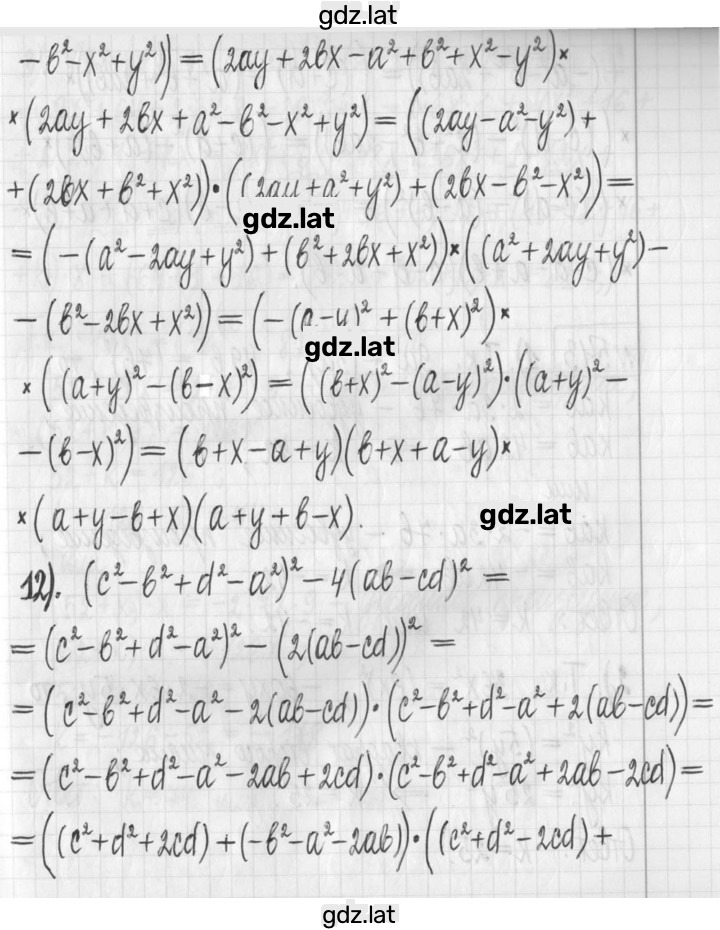 gdz.lat
- в² - x² + y²)) = (2ay + 2вx - a² + в² + x² - y²) ×
× (2ay + 2вx + a² - в² - x² + y²) = ((2ay - a² - y²) +
+ (2вx + в² + x²)) · ((2ay + a² + y²) + (2вx - в² - x²)) =
gdz.lat
= (-(a² - 2ay + y²) + (в² + 2вx + x²)) × ((a² + 2ay + y²) -
- (в² - 2вx + x²)) = (-(a-y)² + (в+x)²) ×
gdz.lat
× ((a+y)² - (в-x)²) = ((в+x)² - (a-y)²) · ((a+y)² -
- (в-x)²) = (в+x-a+y)(в+x+a-y) ×
× (a+y-в+x)(a+y+в-x).
gdz.lat
12). (c² - в² + d² - a²)² - 4(aв - cd)² =
= (c² - в² + d² - a²)² - (2(aв - cd))² =
= (c² - в² + d² - a² - 2(aв - cd)) · (c² - в² + d² - a² + 2(aв - cd)) =
= (c² - в² + d² - a² - 2aв + 2cd) · (c² - в² + d² - a² + 2aв - 2cd) =
= ((c² + d² + 2cd) + (-в² - a² - 2aв)) · ((c² + d² - 2cd) +
gdz.lat